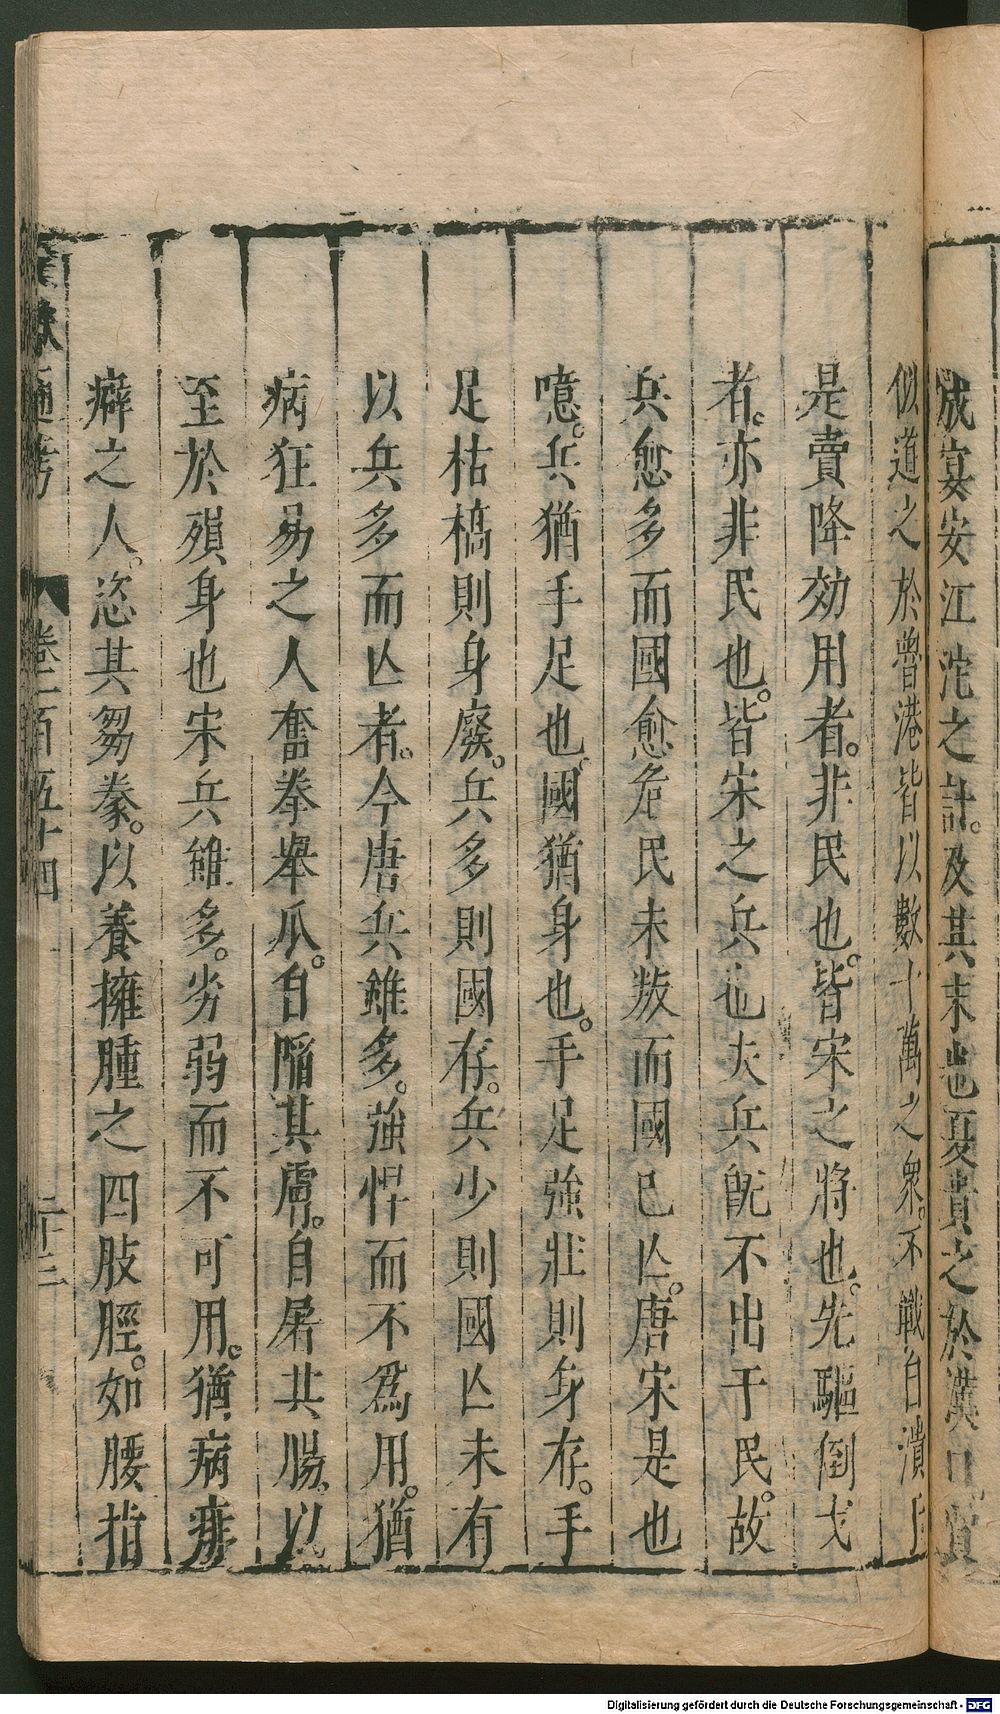 成宴安江沱之計。及其末也夏貴之於漢口賈
似道之於魯港皆以數十萬之衆。不戰自潰於
是賣降効用者。非民也。皆宋之將也。先驅倒戈
者。亦非民也。皆宋之兵也夫兵旣不出于民。故
兵愈多而國愈危民未叛而國已亾。唐宋是也
噫。兵猶手足也。國猶身也。手足強壯則身存。手
足枯槁則身廢。兵多則國存。兵少則國亾未有
以兵多而亾者。今唐兵雖多。強悍而不爲用。猶
病狂易之人奮拳舉爪。自陷其膚。自屠其腸。以
至於殞身也宋兵雖多。劣弱而不可用。猶病痱
癖之人。恣其芻豢。以養擁腫之四肢脛。如腰指
通考 卷一百五十四 二十三
Digitalisierung gefördert durch die Deutsche Forschungsgemeinschaft - DFG